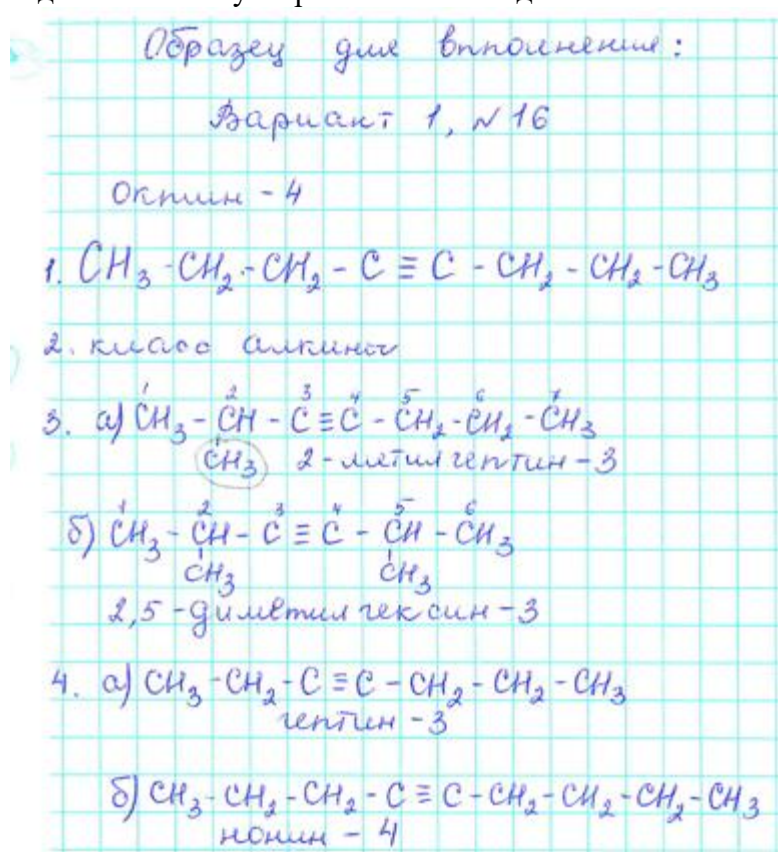 Образец для выполнения:
Вариант 1, №16
Октин - 4
1. CH₃-CH₂-CH₂-C≡C-CH₂-CH₂-CH₃
2. класс алкины
1 2 3 4 5 6 7
3. а) CH₃-CH-C≡C-CH₂-CH₂-CH₃
CH₃ 2-метилгептин-3
1 2 3 4 5 6
б) CH₃-CH-C≡C-CH-CH₃
CH₃ CH₃
2,5-диметилгексин-3
4. а) CH₃-CH₂-C≡C-CH₂-CH₂-CH₃
гептин-3
б) CH₃-CH₂-CH₂-C≡C-CH₂-CH₂-CH₂-CH₃
нонин-4